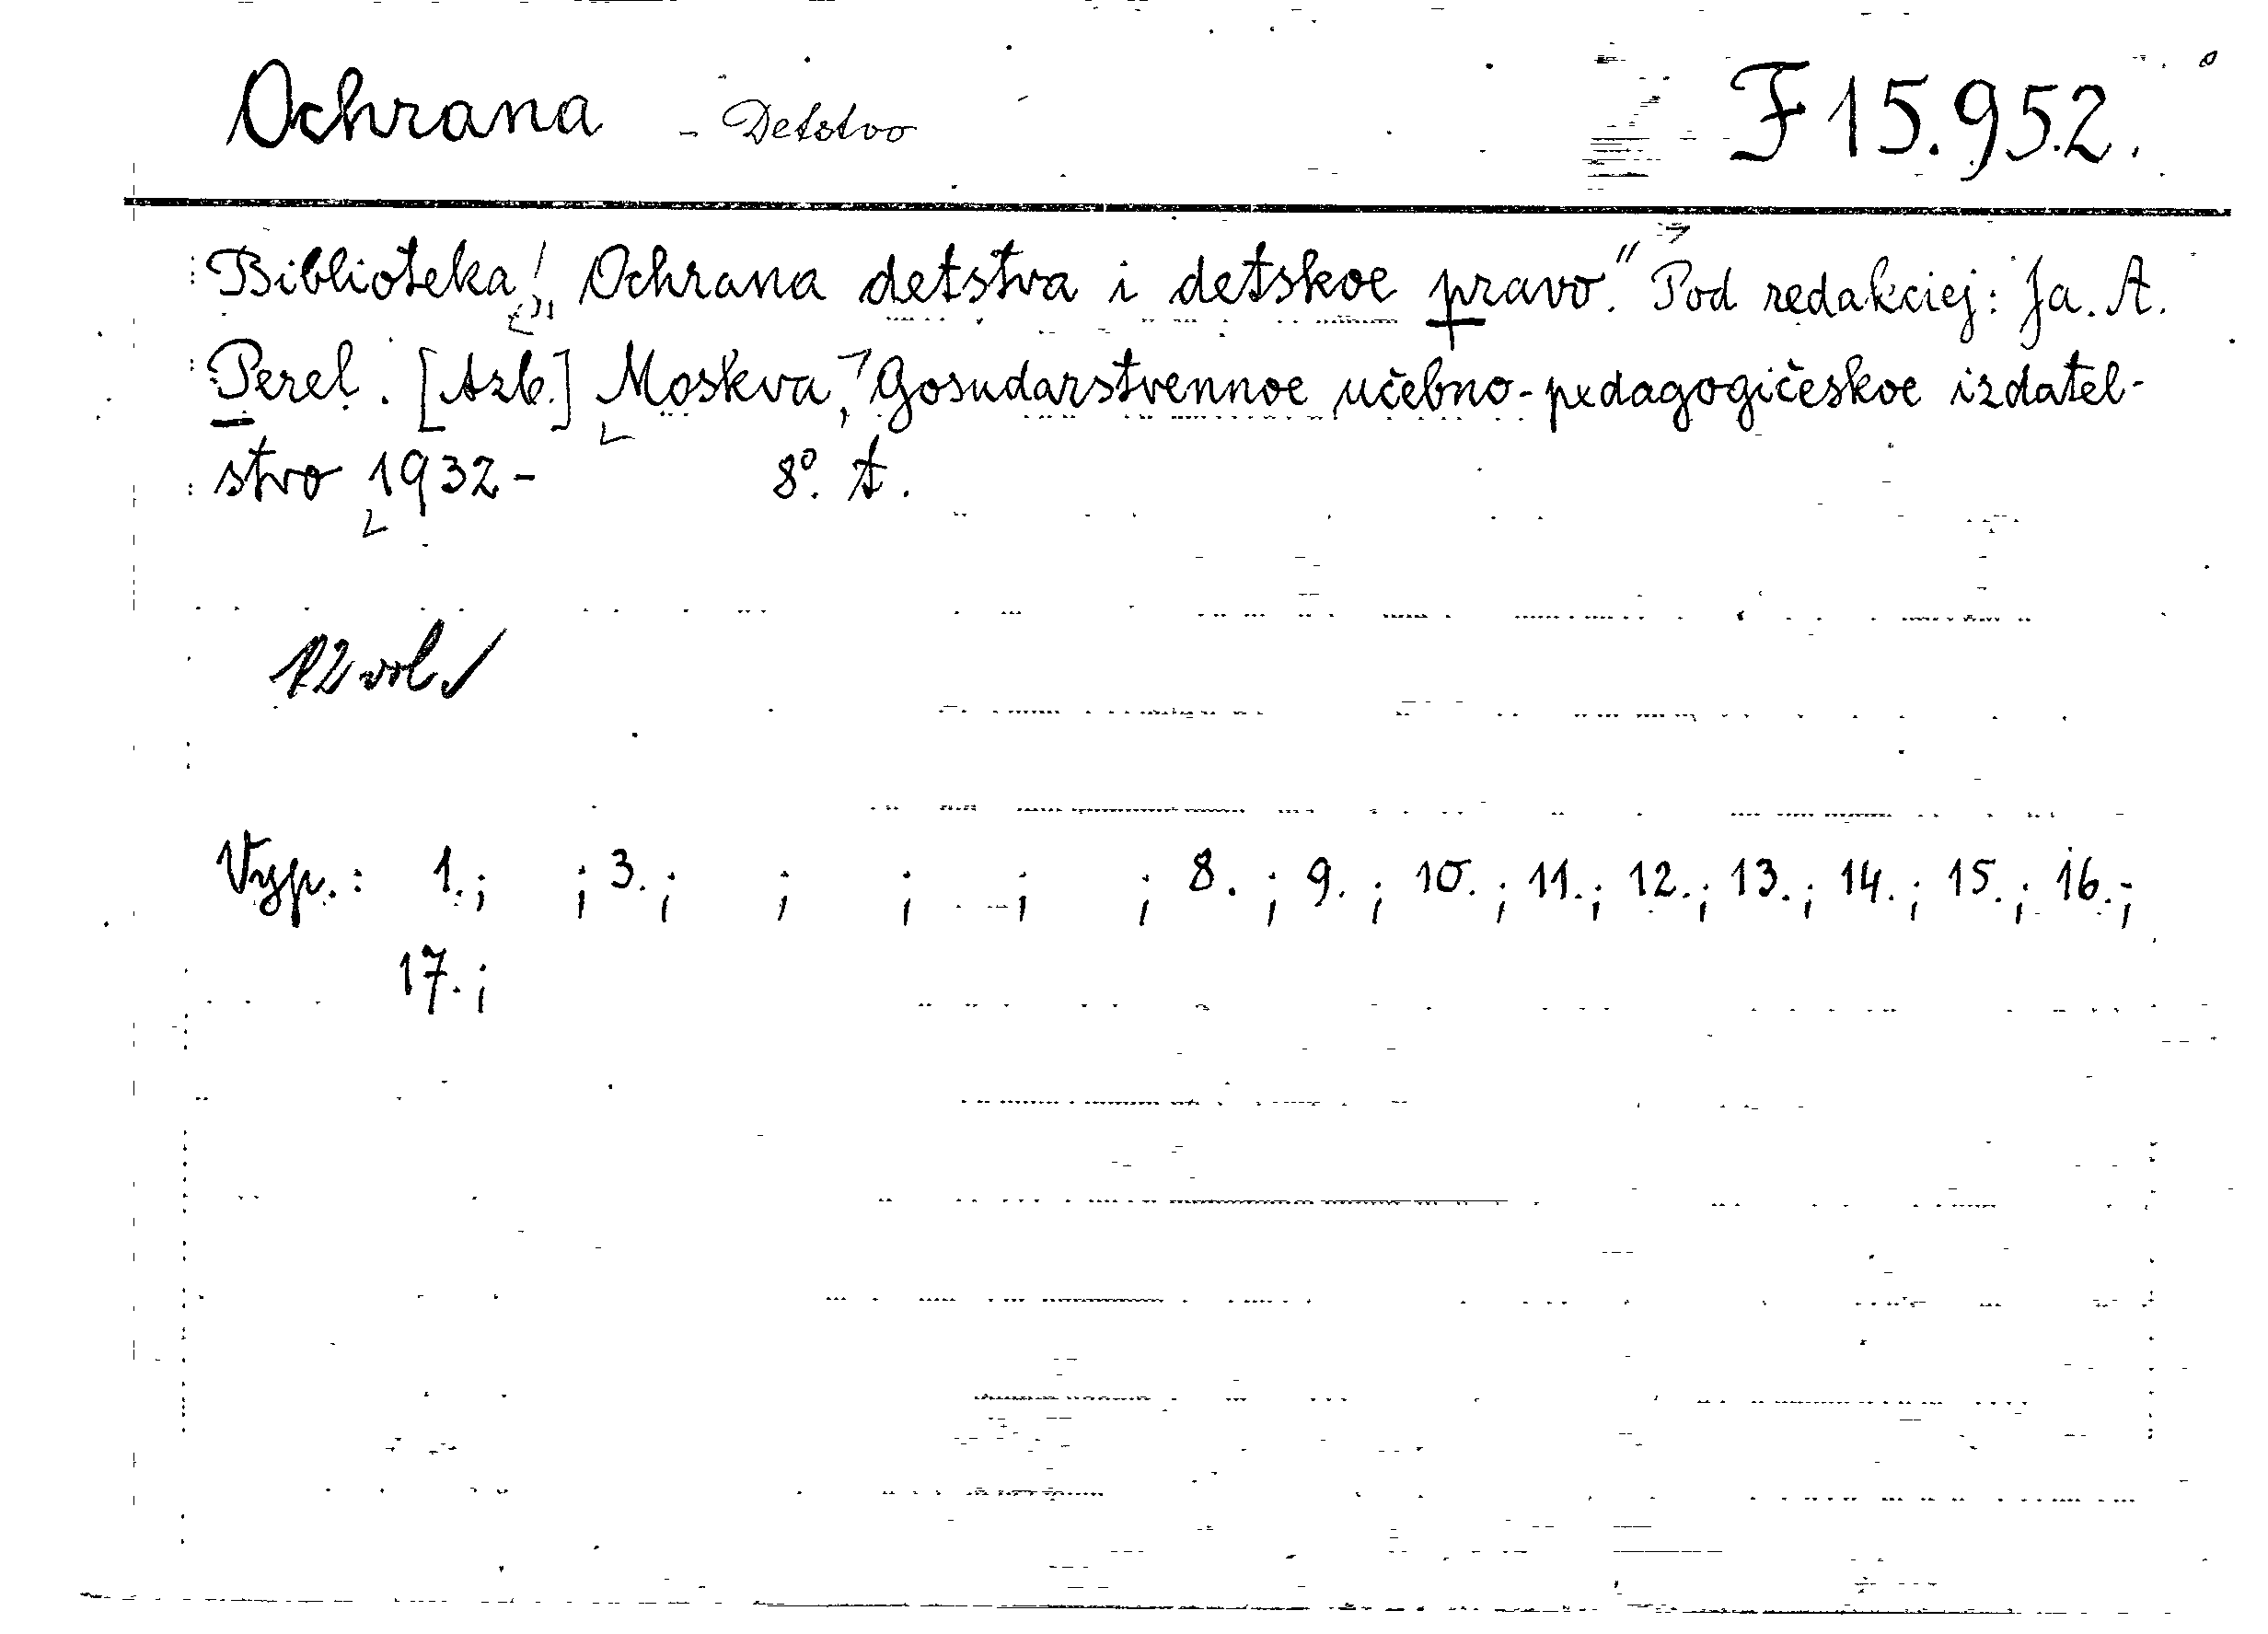 Ochrana - Detstvo F 15.952.
Biblioteka! „Ochrana detstva i detskoe pravo." Pod redakciej: Ja. A.
Perel. [Azb.] Moskva, Gosudarstvennoe učebno-pedagogičeskoe izdatel-
stvo 1932- 8°. A.
12 vol.
Vyp.: 1.; ; 3.; ; ; ; ; 8.; 9.; 10.; 11.; 12.; 13.; 14.; 15.; 16.;
17.;